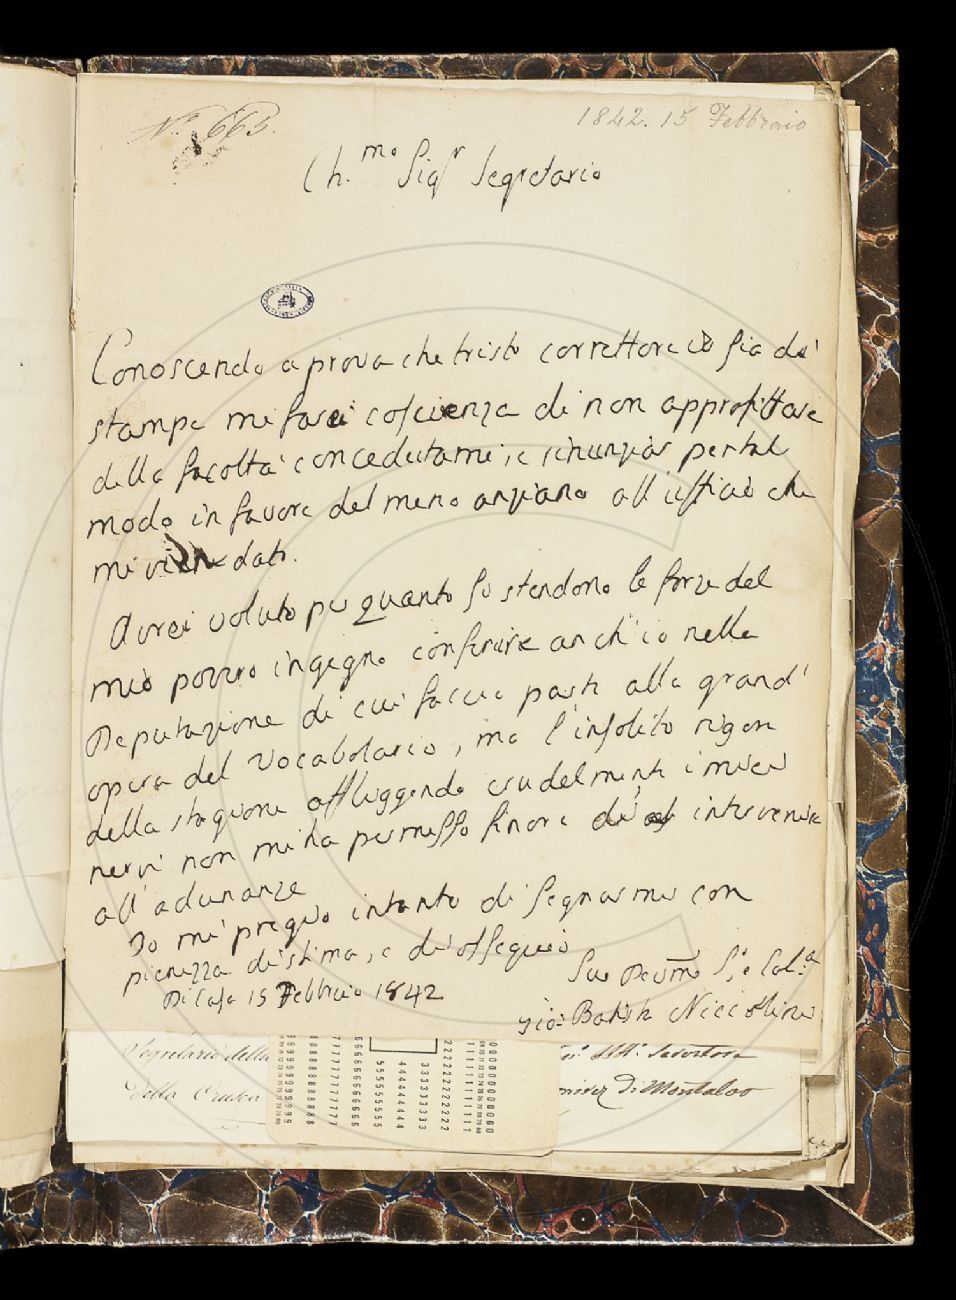 N.º 663.
1842. 15 Febbraio
Ch.mo Sigr Segretario
Conoscendo a prova che tristo correttore io sia di
stampe mi farei coscienza di non approfittare
della facoltà concedutami, e rinunziar per tal
modo in favore del meno anziano all'ufficio che
mi vien dato.
Avrei voluto per quanto si stendono le forze del
mio povero ingegno conferire anch'io nella
Deputazione di cui faccio parte alla grand'
opera del Vocabolario, ma l'insolito rigor
della stagione affliggendo crudelmente i miei
nervi non mi ha permesso finora di intervenire
all'adunanze
Io mi pregio intanto di segnarmi con
pienezza di stima, e di ossequio
Di Casa 15 Febbraio 1842
Suo Devmo S. e Col.a
Gio: Batista Niccolini
Segretario della
Della Crusca
Di Montalvo